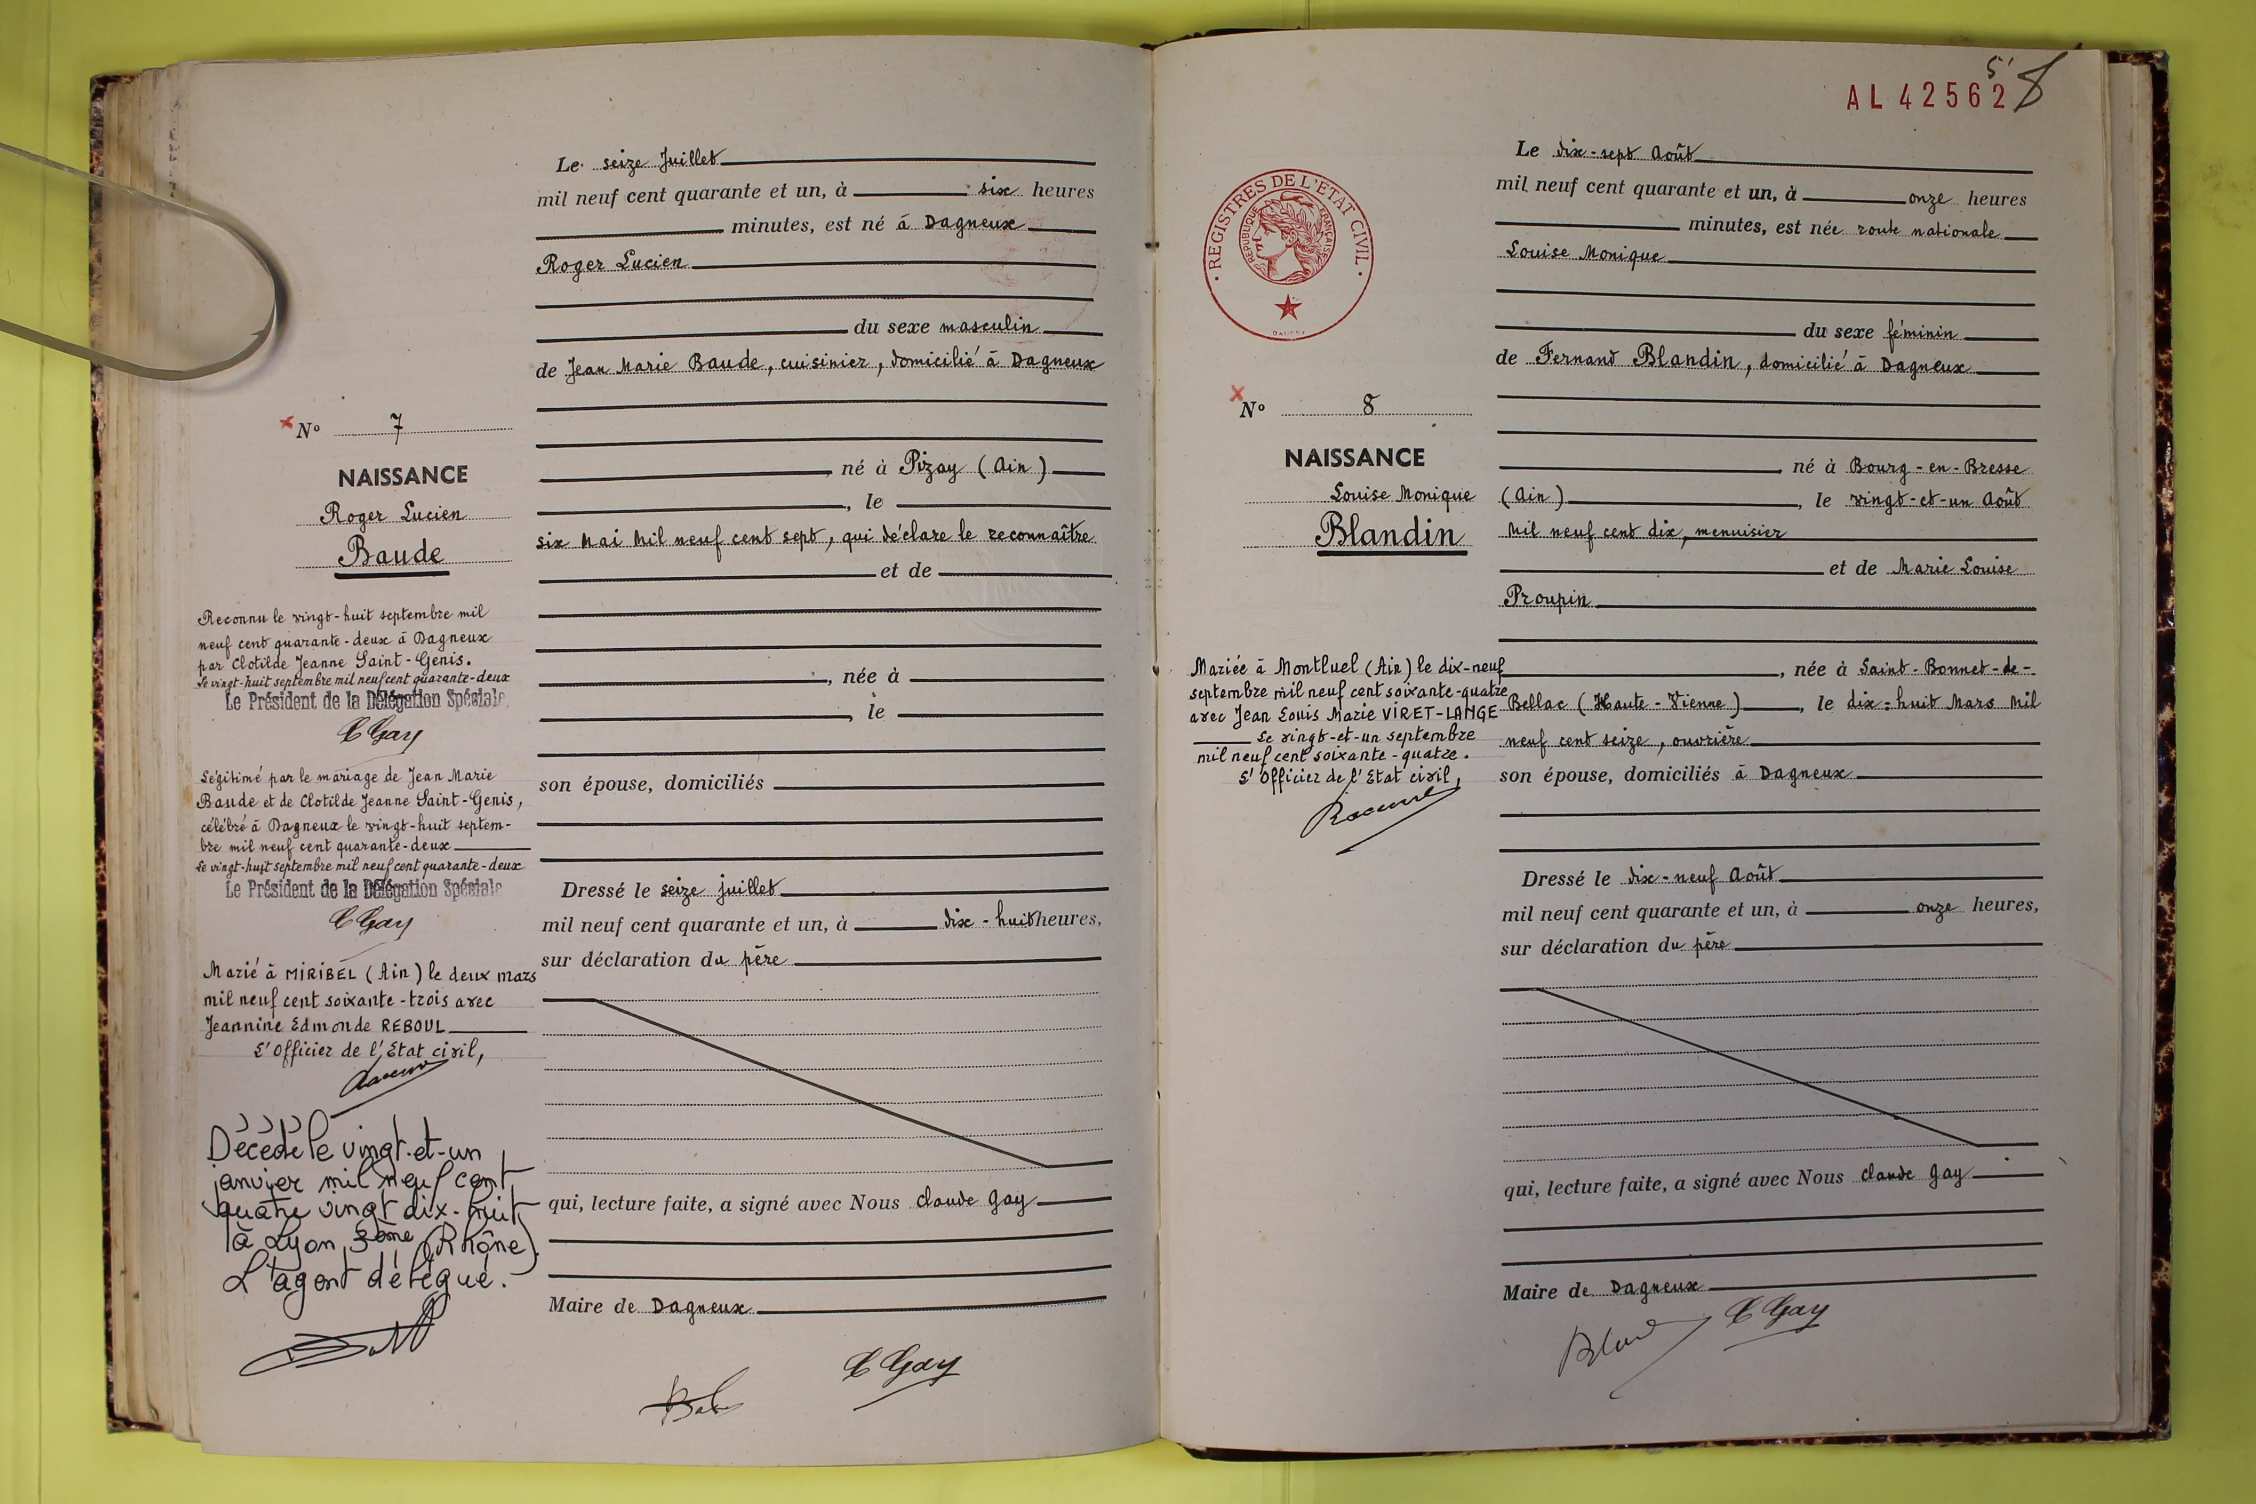 Le seize Juillet
mil neuf cent quarante et un, à six heures
minutes, est né à Dagneux
Roger Lucien
du sexe masculin
de Jean Marie Baude, cuisinier, domicilié à Dagneux
né à Pizay (Ain)
, le
six Mai Mil neuf cent sept, qui déclare le reconnaître
et de
, née à
, le
son épouse, domiciliés
Dressé le seize juillet
mil neuf cent quarante et un, à dix-huit heures,
sur déclaration du père
qui, lecture faite, a signé avec Nous Claude Gay
Maire de Dagneux
C Gay
N° 7
NAISSANCE
Roger Lucien
Baude
Reconnu le vingt-huit septembre mil
neuf cent quarante-deux à Dagneux
par Clotilde Jeanne Saint-Genis.
Le vingt-huit septembre mil neuf cent quarante-deux
Le Président de la Délégation Spéciale,
C Gay
Légitimé par le mariage de Jean Marie
Baude et de Clotilde Jeanne Saint-Genis,
célébré à Dagneux le vingt-huit septem-
bre mil neuf cent quarante-deux
Le vingt-huit septembre mil neuf cent quarante-deux
Le Président de la Délégation Spéciale
C Gay
Marié à MIRIBEL (Ain) le deux mars
mil neuf cent soixante-trois avec
Jeannine Edmonde REBOUL
L'Officier de l'Etat civil,
Décédé le vingt-et-un
janvier mil neuf cent
quatre vingt dix-huit
à Lyon 3ème (Rhône).
L'agent délégué.
AL 42562
5'
8
REGISTRES DE L'ETAT CIVIL
REPUBLIQUE FRANÇAISE
Le dix-sept Août
mil neuf cent quarante et un, à onze heures
minutes, est née route nationale
Louise Monique
du sexe féminin
de Fernand Blandin, domicilié à Dagneux
né à Bourg-en-Bresse
(Ain), le vingt-et-un Août
Mil neuf cent dix, menuisier
et de Marie Louise
Proupin
, née à Saint-Bonnet-de-
Bellac (Haute-Vienne), le dix-huit Mars Mil
neuf cent seize, ouvrière
son épouse, domiciliés à Dagneux
Dressé le dix-neuf Août
mil neuf cent quarante et un, à onze heures,
sur déclaration du père
qui, lecture faite, a signé avec Nous Claude Gay
Maire de Dagneux
C Gay
N° 8
NAISSANCE
Louise Monique
Blandin
Mariée à Montluel (Ain) le dix-neuf
septembre mil neuf cent soixante-quatre
avec Jean Louis Marie VIRET-LANGE
Le vingt-et-un septembre
mil neuf cent soixante-quatre.
L'Officier de l'Etat civil,